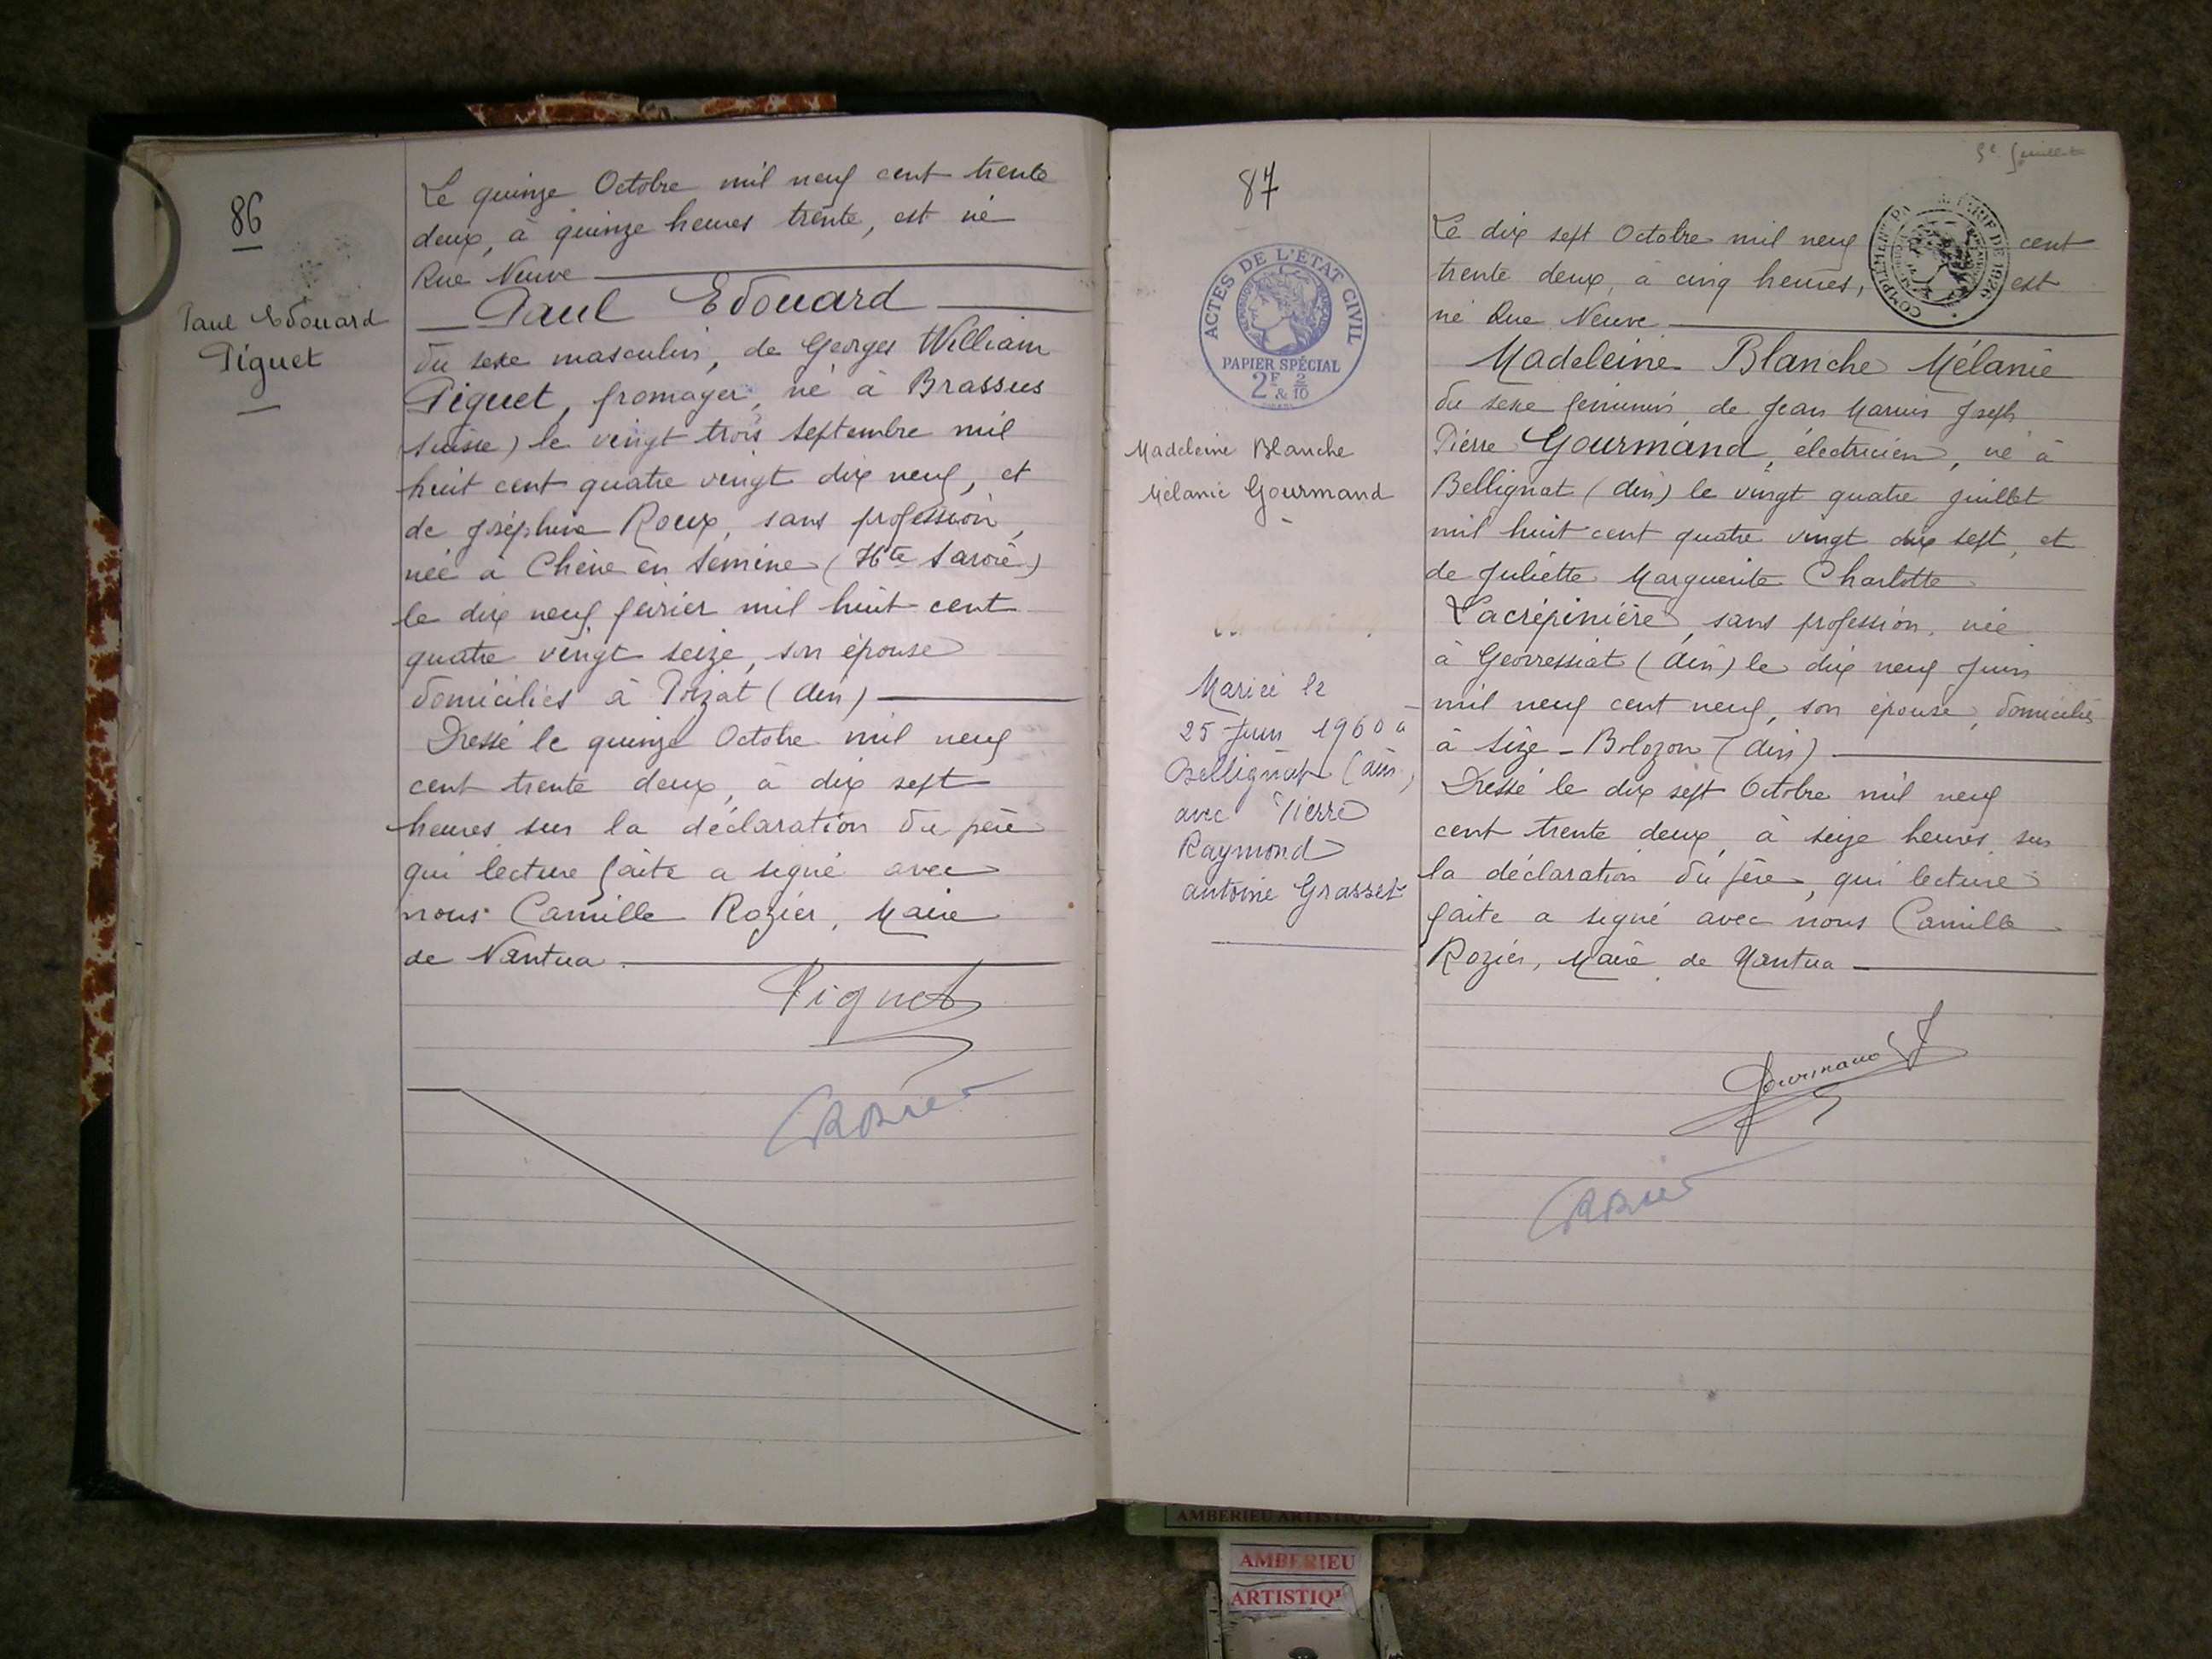 86
Paul Edouard
Piguet
Le quinze Octobre mil neuf cent trente
deux, à quinze heures trente, est né
Rue Neuve
Paul Edouard
du sexe masculin, de Georges William
Piguet, fromager, né à Brassus
(Suisse) le vingt trois septembre mil
huit cent quatre vingt dix neuf, et
de Joséphine Roux, sans profession,
née à Chêne en Semine (Hte Savoie)
le dix neuf février mil huit cent
quatre vingt seize, son épouse
domiciliés à Poizat (Ain)
Dressé le quinze Octobre mil neuf
cent trente deux, à dix sept
heures sur la déclaration du père
qui lecture faite a signé avec
nous Camille Rozier, Maire
de Nantua.
Piguet
CRozier
87
ACTES DE L'ÉTAT CIVIL
PAPIER SPÉCIAL
2F & 2/10
Madeleine Blanche
Mélanie Gourmand
Mariée le
25 Juin 1960 à
Bellignat (Ain)
avec Pierre
Raymond
Antoine Grasset
Le dix sept Octobre mil neuf cent
trente deux, à cinq heures, est
né Rue Neuve
Madeleine Blanche Mélanie
du sexe féminin, de Jean Marius Joseph
Pierre Gourmand, électricien, né à
Bellignat (Ain) le vingt quatre juillet
mil huit cent quatre vingt dix sept, et
de Juliette Marguerite Charlotte
Lacrépinière, sans profession, née
à Géovressiat (Ain) le dix neuf Juin
mil neuf cent neuf, son épouse, domiciliés
à Size-Bolozon (Ain)
Dressé le dix sept Octobre mil neuf
cent trente deux, à seize heures sur
la déclaration du père, qui lecture
faite a signé avec nous Camille
Rozier, Maire de Nantua
Gourmand J
CRozier
AMBERIEU ARTISTIQUE
AMBERIEU
ARTISTIQU